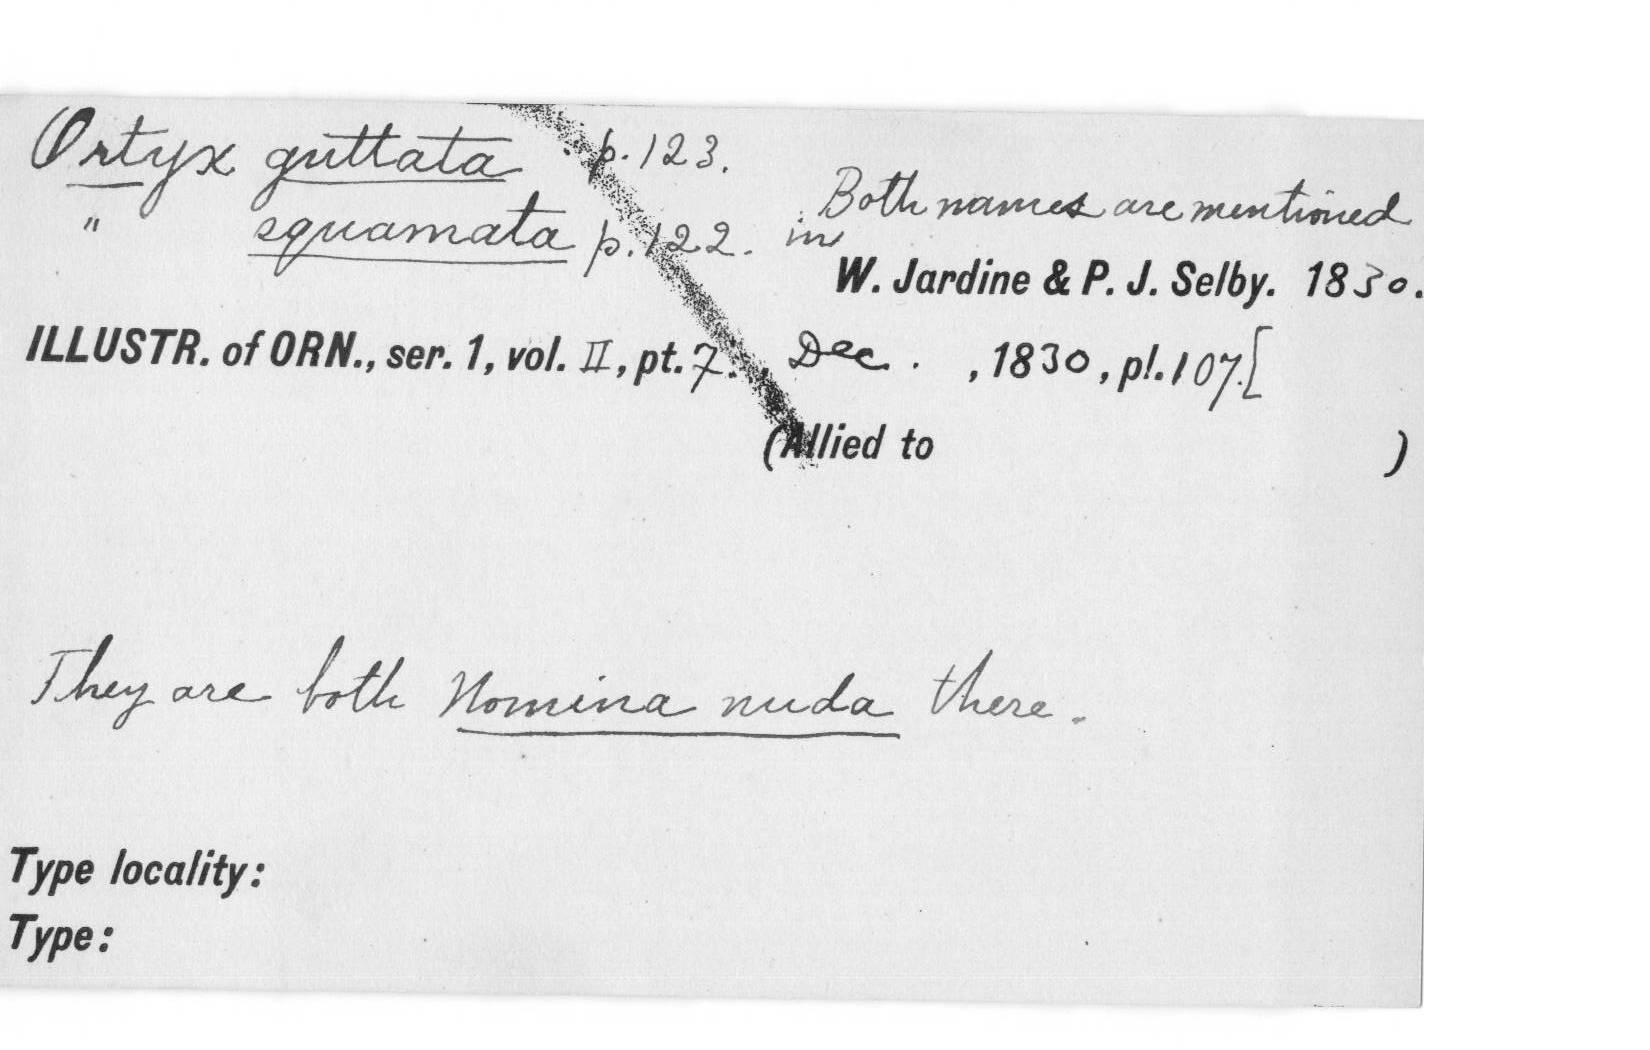 Ortyx guttata . p. 123.
" squamata p. 122. Both names are mentioned
in
W. Jardine & P. J. Selby. 1830.
ILLUSTR. of ORN., ser. 1, vol. II, pt. 7., Dec. , 1830, pl. 107.[
(Allied to )
They are both Nomina nuda there.
Type locality:
Type: